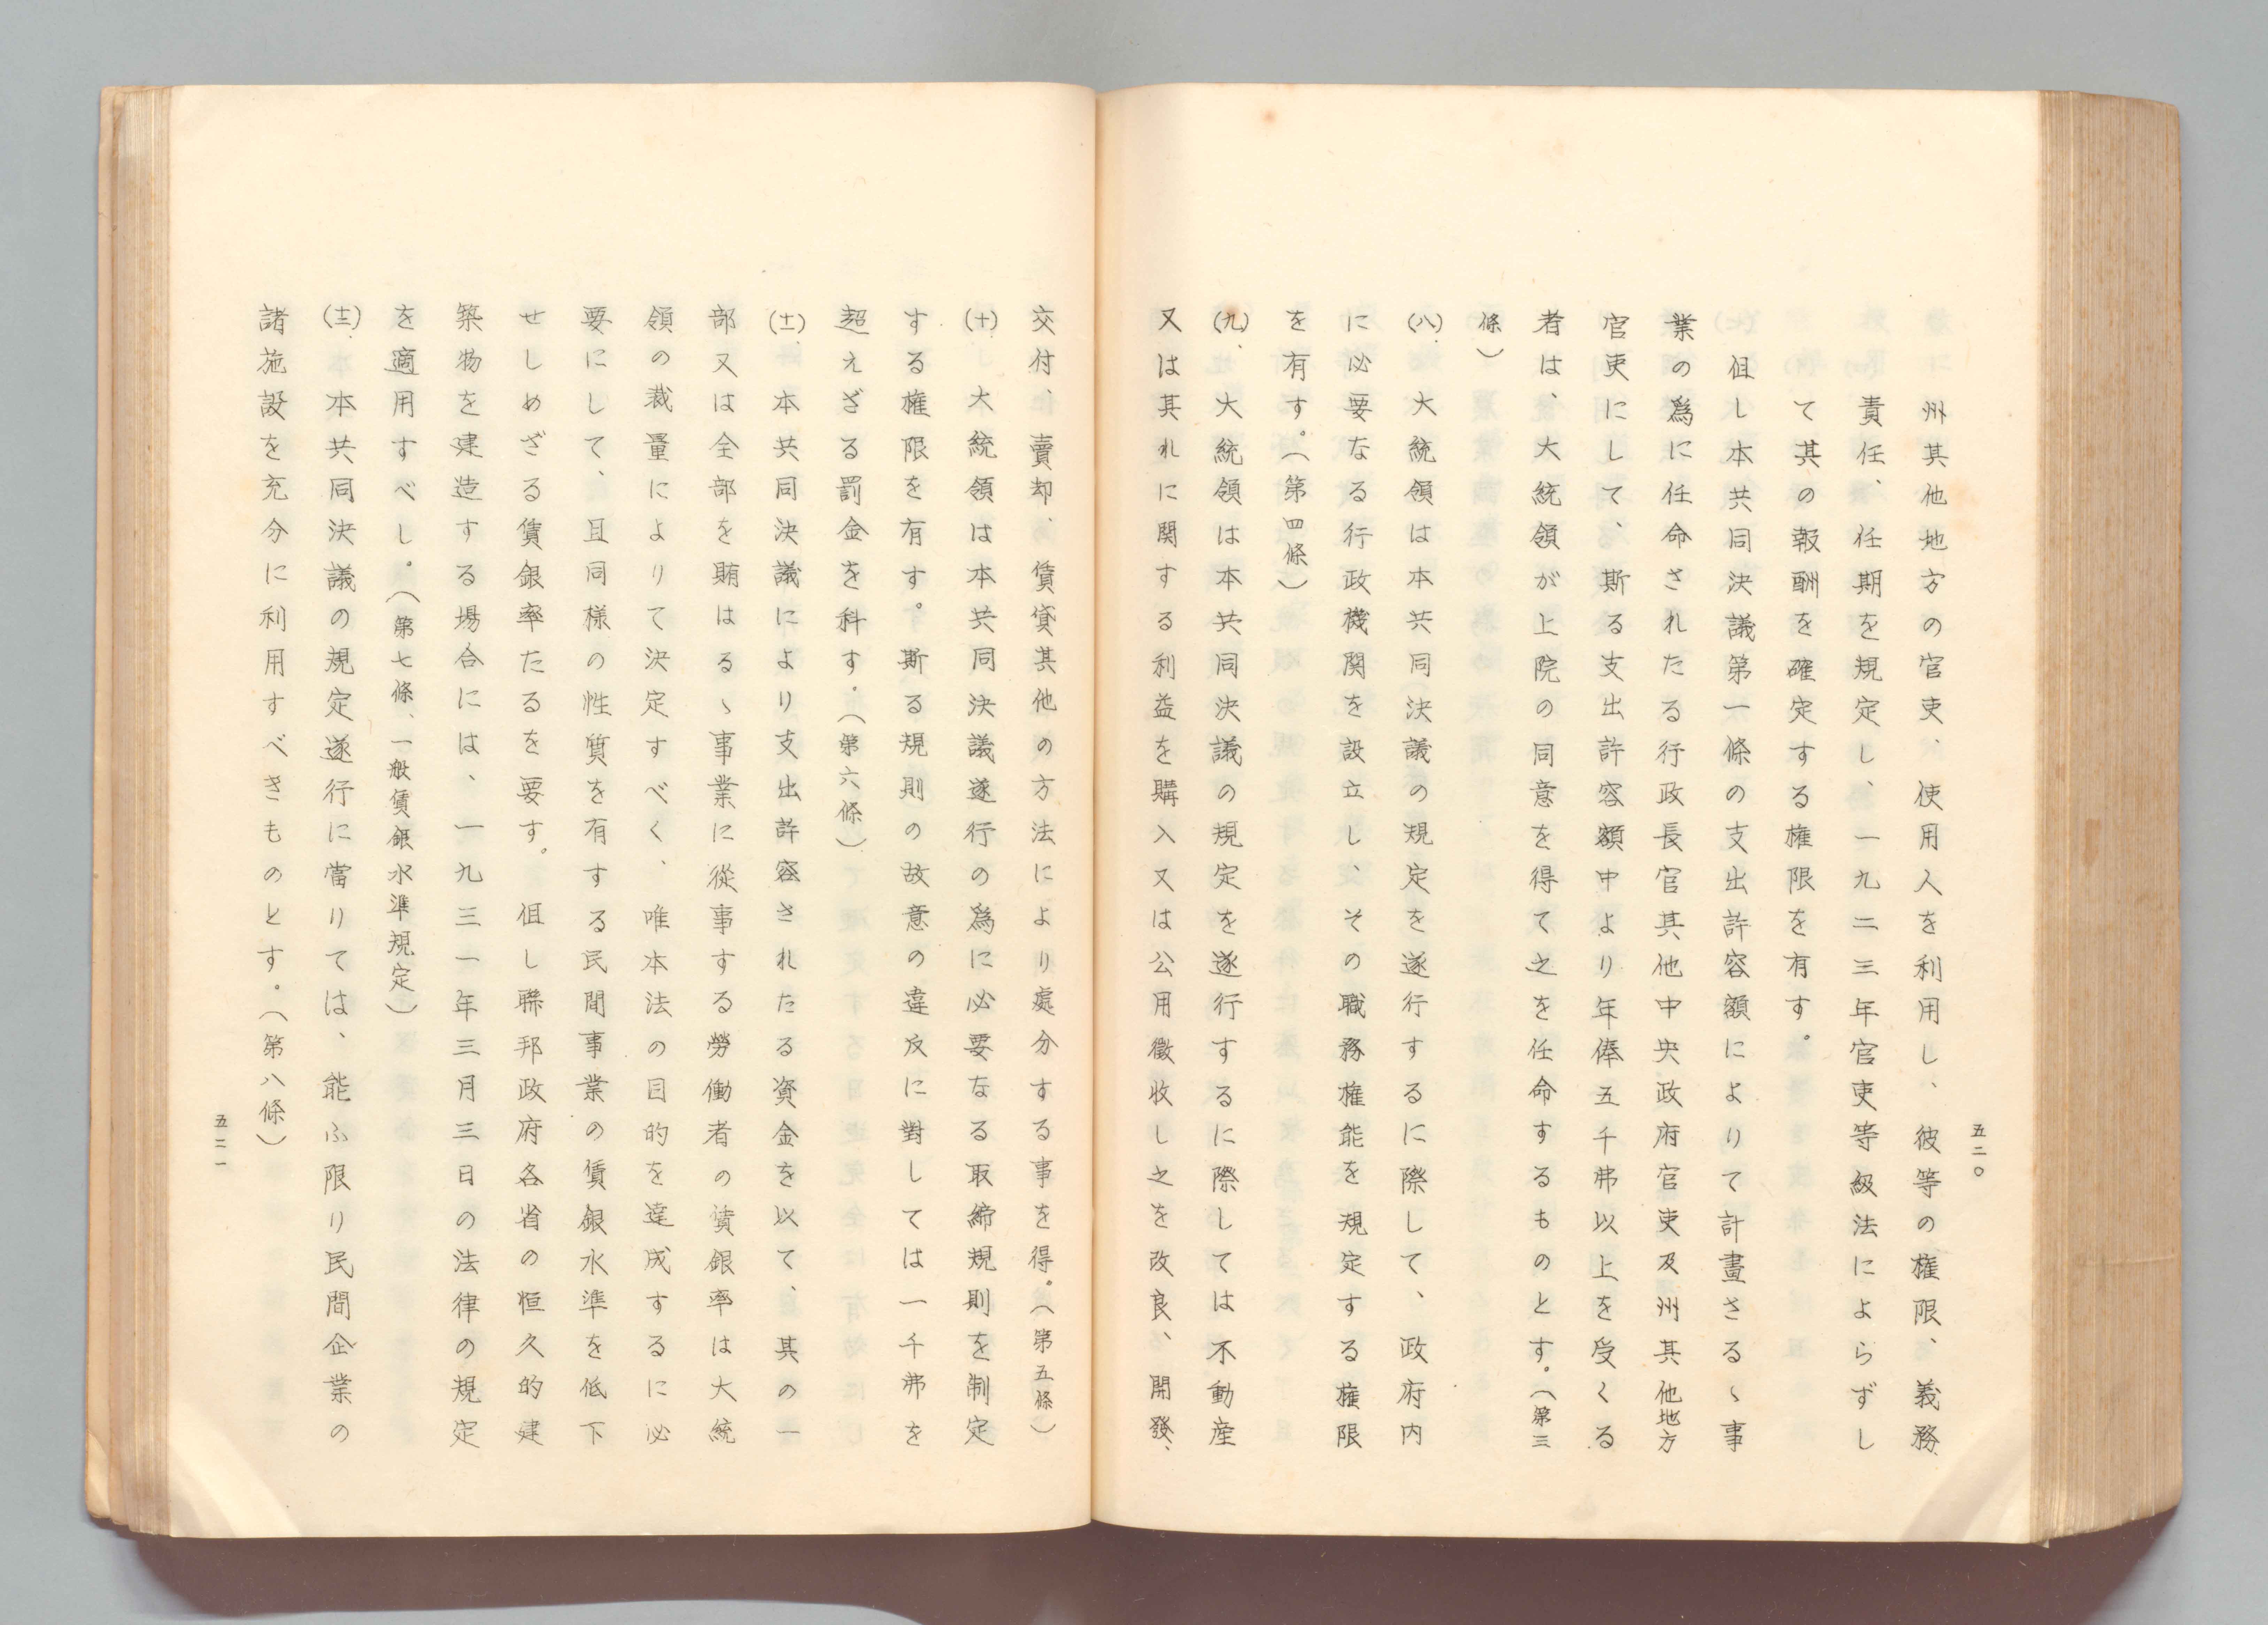 五二〇
州其他地方の官吏、使用人を利用し、彼等の権限、義務、
責任、任期を規定し、一九二三年官吏等級法によらずし
て其の報酬を確定する権限を有す。
但し本共同決議第一條の支出許容額によりて計畫さるゝ事
業の爲に任命されたる行政長官其他中央政府官吏及州其他地方
官吏にして、斯る支出許容額中より年俸五千弗以上を受くる
者は、大統領が上院の同意を得て之を任命するものとす。（第三
條）
(八)、大統領は本共同決議の規定を遂行するに際して、政府内
に必要なる行政機関を設立し、その職務権能を規定する権限
を有す。（第四條）
(九)、大統領は本共同決議の規定を遂行するに際しては不動産
又は其れに関する利益を購入又は公用徴收し之を改良、開發、
交付、賣却、賃貸其他の方法により處分する事を得。（第五條）
(十)、大統領は本共同決議遂行の爲に必要なる取締規則を制定
する権限を有す。斯る規則の故意の違反に對しては一千弗を
超えざる罰金を科す。（第六條）
(十一)、本共同決議により支出許容されたる資金を以て、其の一
部又は全部を賄はるゝ事業に從事する勞働者の賃銀率は大統
領の裁量によりて決定すべく、唯本法の目的を達成するに必
要にして、且同様の性質を有する民間事業の賃銀水準を低下
せしめざる賃銀率たるを要す。但し聯邦政府各省の恒久的建
築物を建造する場合には、一九三一年三月三日の法律の規定
を適用すべし。（第七條、一般賃銀水準規定）
(十二)、本共同決議の規定遂行に當りては、能ふ限り民間企業の
諸施設を充分に利用すべきものとす。（第八條）
五二一